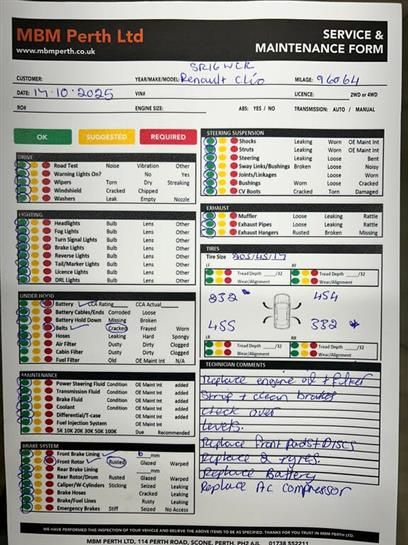 MBM Perth Ltd
www.mbmperth.co.uk
SERVICE &
MAINTENANCE FORM
SR16 WCR
CUSTOMER: YEAR/MAKE/MODEL: Renault Clio MILAGE: 96064
DATE: 14.10.2025 VIN# LICENCE: 2WD or 4WD
RO# ENGINE SIZE: ABS: YES / NO TRANSMISSION: AUTO / MANUAL
OK SUGGESTED REQUIRED
DRIVE
Road Test Noise Vibration Other
Warning Lights On? No Yes
Wipers Torn Dry Streaking
Windshield Cracked Chipped
Washers Leak Empty Nozzle
LIGHTING
Headlights Bulb Lens Other
Fog Lights Bulb Lens Other
Turn Signal Lights Bulb Lens Other
Brake Lights Bulb Lens Other
Reverse Lights Bulb Lens Other
Tail/Marker Lights Bulb Lens Other
Licence Lights Bulb Lens Other
DRL Lights Bulb Lens Other
UNDER HOOD
Battery CCA Rating CCA Actual
Battery Cables/Ends Corroded Loose
Battery Hold Down Missing Broken
Belts Cracked Frayed Worn
Hoses Leaking Hard Spongy
Air Filter Dusty Dirty Clogged
Cabin Filter Dusty Dirty Clogged
Fuel Filter Old OE Maint Int N/A
MAINTENANCE
Power Steering Fluid Condition OE Maint Int added
Transmission Fluid Condition OE Maint Int added
Brake Fluid Condition OE Maint Int added
Coolant Condition OE Maint Int added
Differential/T-case Condition OE Maint Int added
Fuel Injection System OE Maint Int added
5K 10K 20K 30K 50K 100K Due Recommended
BRAKE SYSTEM
Front Brake Lining 6 mm
Front Rotor Rusted Glazed Warped
Rear Brake Lining mm
Rear Rotor/Drum Rusted Glazed Warped
Caliper/W-Cylinders Sticking Seized Leaking
Brake Hoses Cracked Leaking
Brake/Fuel Lines Rusty Leaking
Emergency Brakes Stiff Seized No Access
STEERING SUSPENSION
Shocks Leaking Worn OE Maint Int
Struts Leaking Worn OE Maint Int
Steering Leaking Loose Bent
Sway Links/Bushings Broken Loose Noisy
Joints/Linkages Worn Loose
Bushings Worn Loose Cracked
CV Boots Cracked Torn Damaged
EXHAUST
Muffler Loose Leaking Rattle
Exhaust Pipes Loose Leaking Rattle
Exhaust Hangers Rusted Broken Missing
TIRES
Tire Size
LF RF
Tread Depth /32 Tread Depth /32
LR RR
Tread Depth /32 Tread Depth /32
TECHNICIAN COMMENTS
Replace engine oil + Filter
Strip + clean brakes
Check over
Levels.
Replace Front Pads + Discs
Replace 2 tyres.
Replace Battery
Replace AC Compressor
WE HAVE PERFORMED THIS INSPECTION OF YOUR VEHICLE AND BELIEVE THE ABOVE ITEMS TO BE AS SPECIFIED. THANKS FOR YOU TRUST IN MBM PERTH LTD.
MBM PERTH LTD, 114 PERTH ROAD, SCONE, PERTH, PH2 6JL 01738 552211